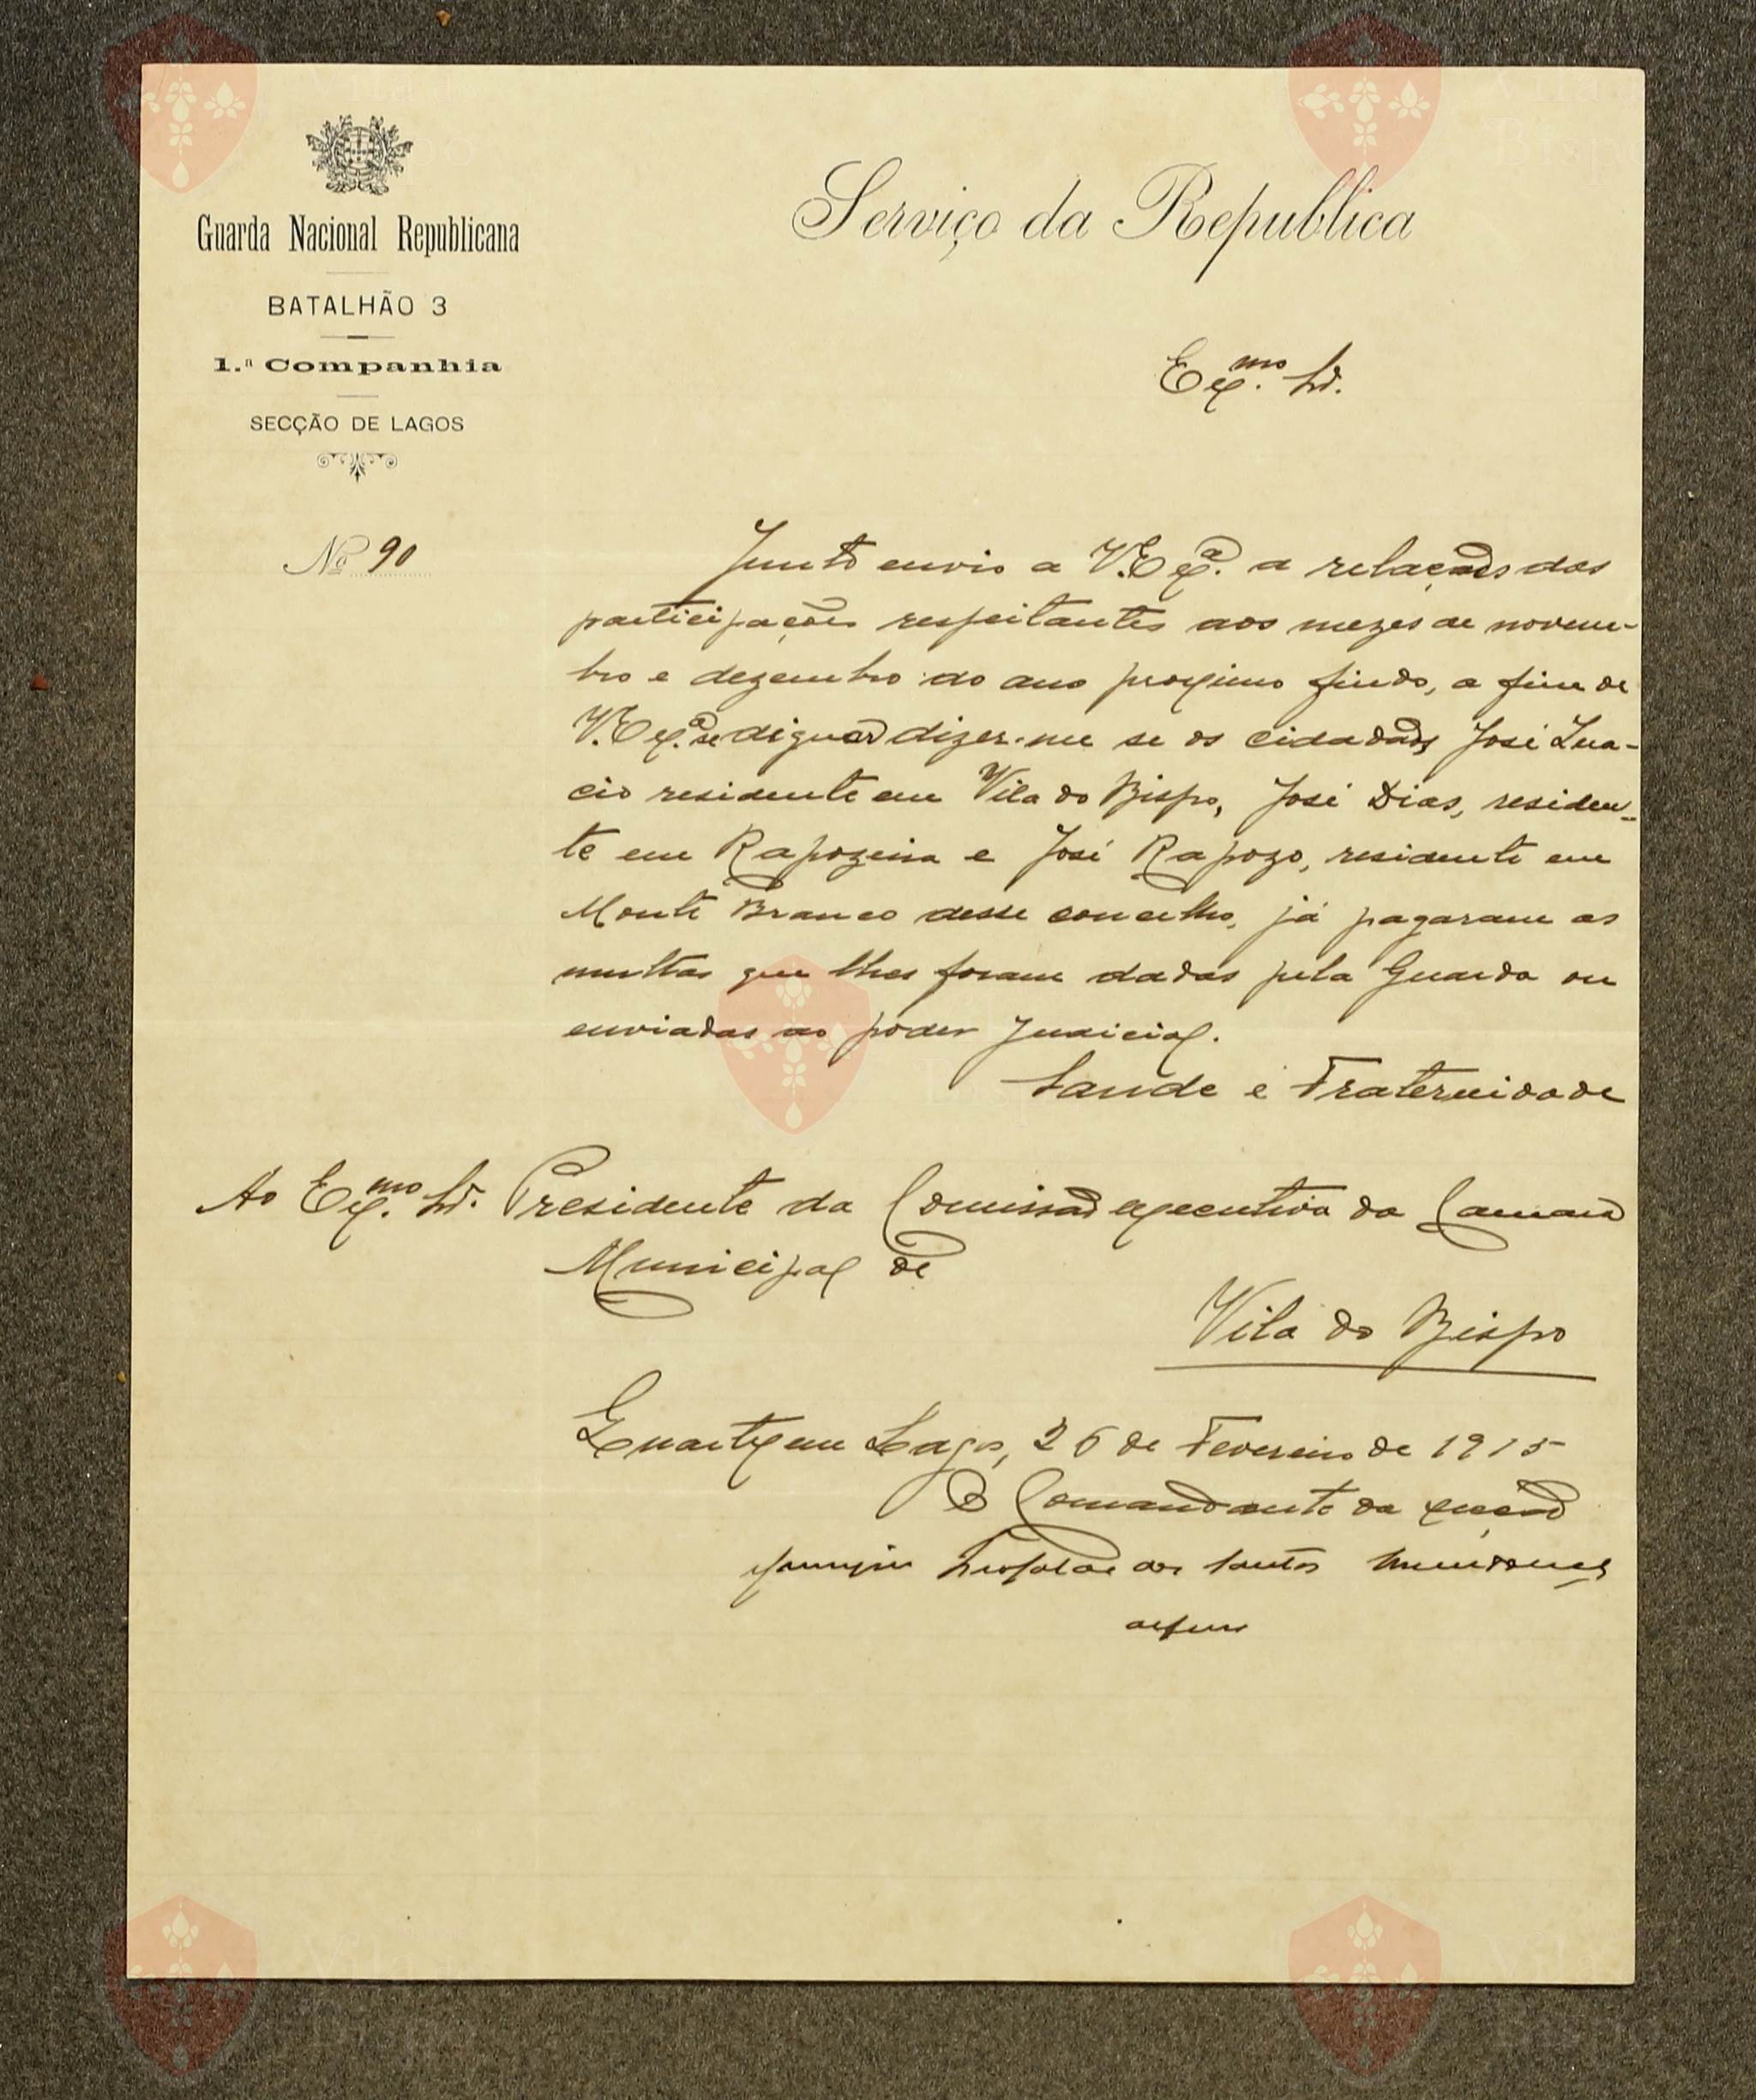 Guarda Nacional Republicana
BATALHÃO 3
1.ª Companhia
SECÇÃO DE LAGOS
Nº 90
Serviço da Republica
Exmo. Sr.
Junto envio a V. Exª. a relação das
participações respeitantes aos mezes de novem-
bro e dezembro do ano proximo findo, a fim de
V. Exª. se dignar dizer-me se os cidadãos José
cio residente em Vila do Bispo, José Dias, residen-
te em Rapozeira e José Rapozo, residente em
Monte Branco desse concelho, já pagaram as
multas que lhes foram dadas pela Guarda ou
enviadas ao poder Judicial.
Saude e Fraternidade
Ao Exmo. Sr. Presidente da Comissão executiva da Camara
Municipal de
Vila do Bispo
Quartel em Lagos, 26 de Fevereiro de 1915
O Comandante da secção
dos Santos